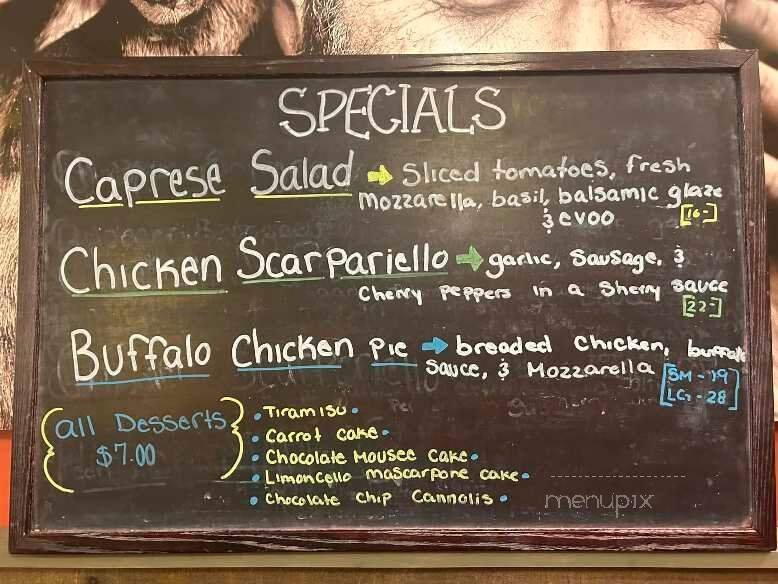 SPECIALS
Caprese Salad → Sliced tomatoes, fresh
Mozzarella, basil, balsamic glaze
& evoo [16-]
Chicken Scarpariello → garlic, Sausage, &
Cherry Peppers in a Sherry sauce
[22-]
Buffalo Chicken Pie → breaded Chicken, buffalo
Sauce, & Mozzarella [SM - 19
LG - 28]
{all Desserts
$7.00}
• Tiramisu •
• Carrot Cake •
• Chocolate Mousee Cake •
• Limoncello mascarpone cake •
• Chocolate Chip Cannolis •
menupix